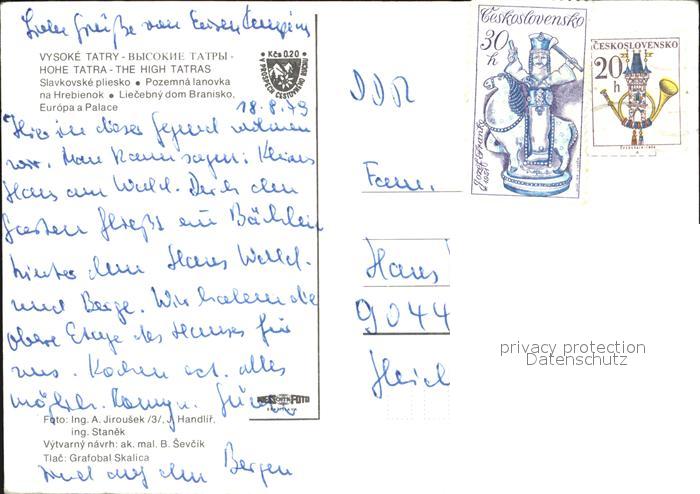 Liebe Grüße von Eurem Camping
VYSOKÉ TATRY - ВЫСОКИЕ ТАТРЫ -
HOHE TATRA - THE HIGH TATRAS
Slavkovské pliesko ● Pozemná lanovka
na Hrebienok ● Liečebný dom Branisko,
Európa a Palace
Kčs 0.20
18.8.79
Hier in dieser Gegend wohnen
wir. Man kann sagen: kleines
Haus am Wald. Durch den
Garten fließt ein Bächlein
hinter dem Haus Wald
und Berge. Wir haben die
obere Etage des Hauses für
uns. Kochen ect. alles
möglich.
Foto: Ing. A. Jiroušek /3/, J. Handlíř,
ing. Staněk
Výtvarný návrh: ak. mal. B. Ševčík
Tlač: Grafobal Skalica
sind auf den Bergen
Československo
30 h
ČESKOSLOVENSKO
20 h
DDR
Fam.
Hans
9044
privacy protection
Datenschutz